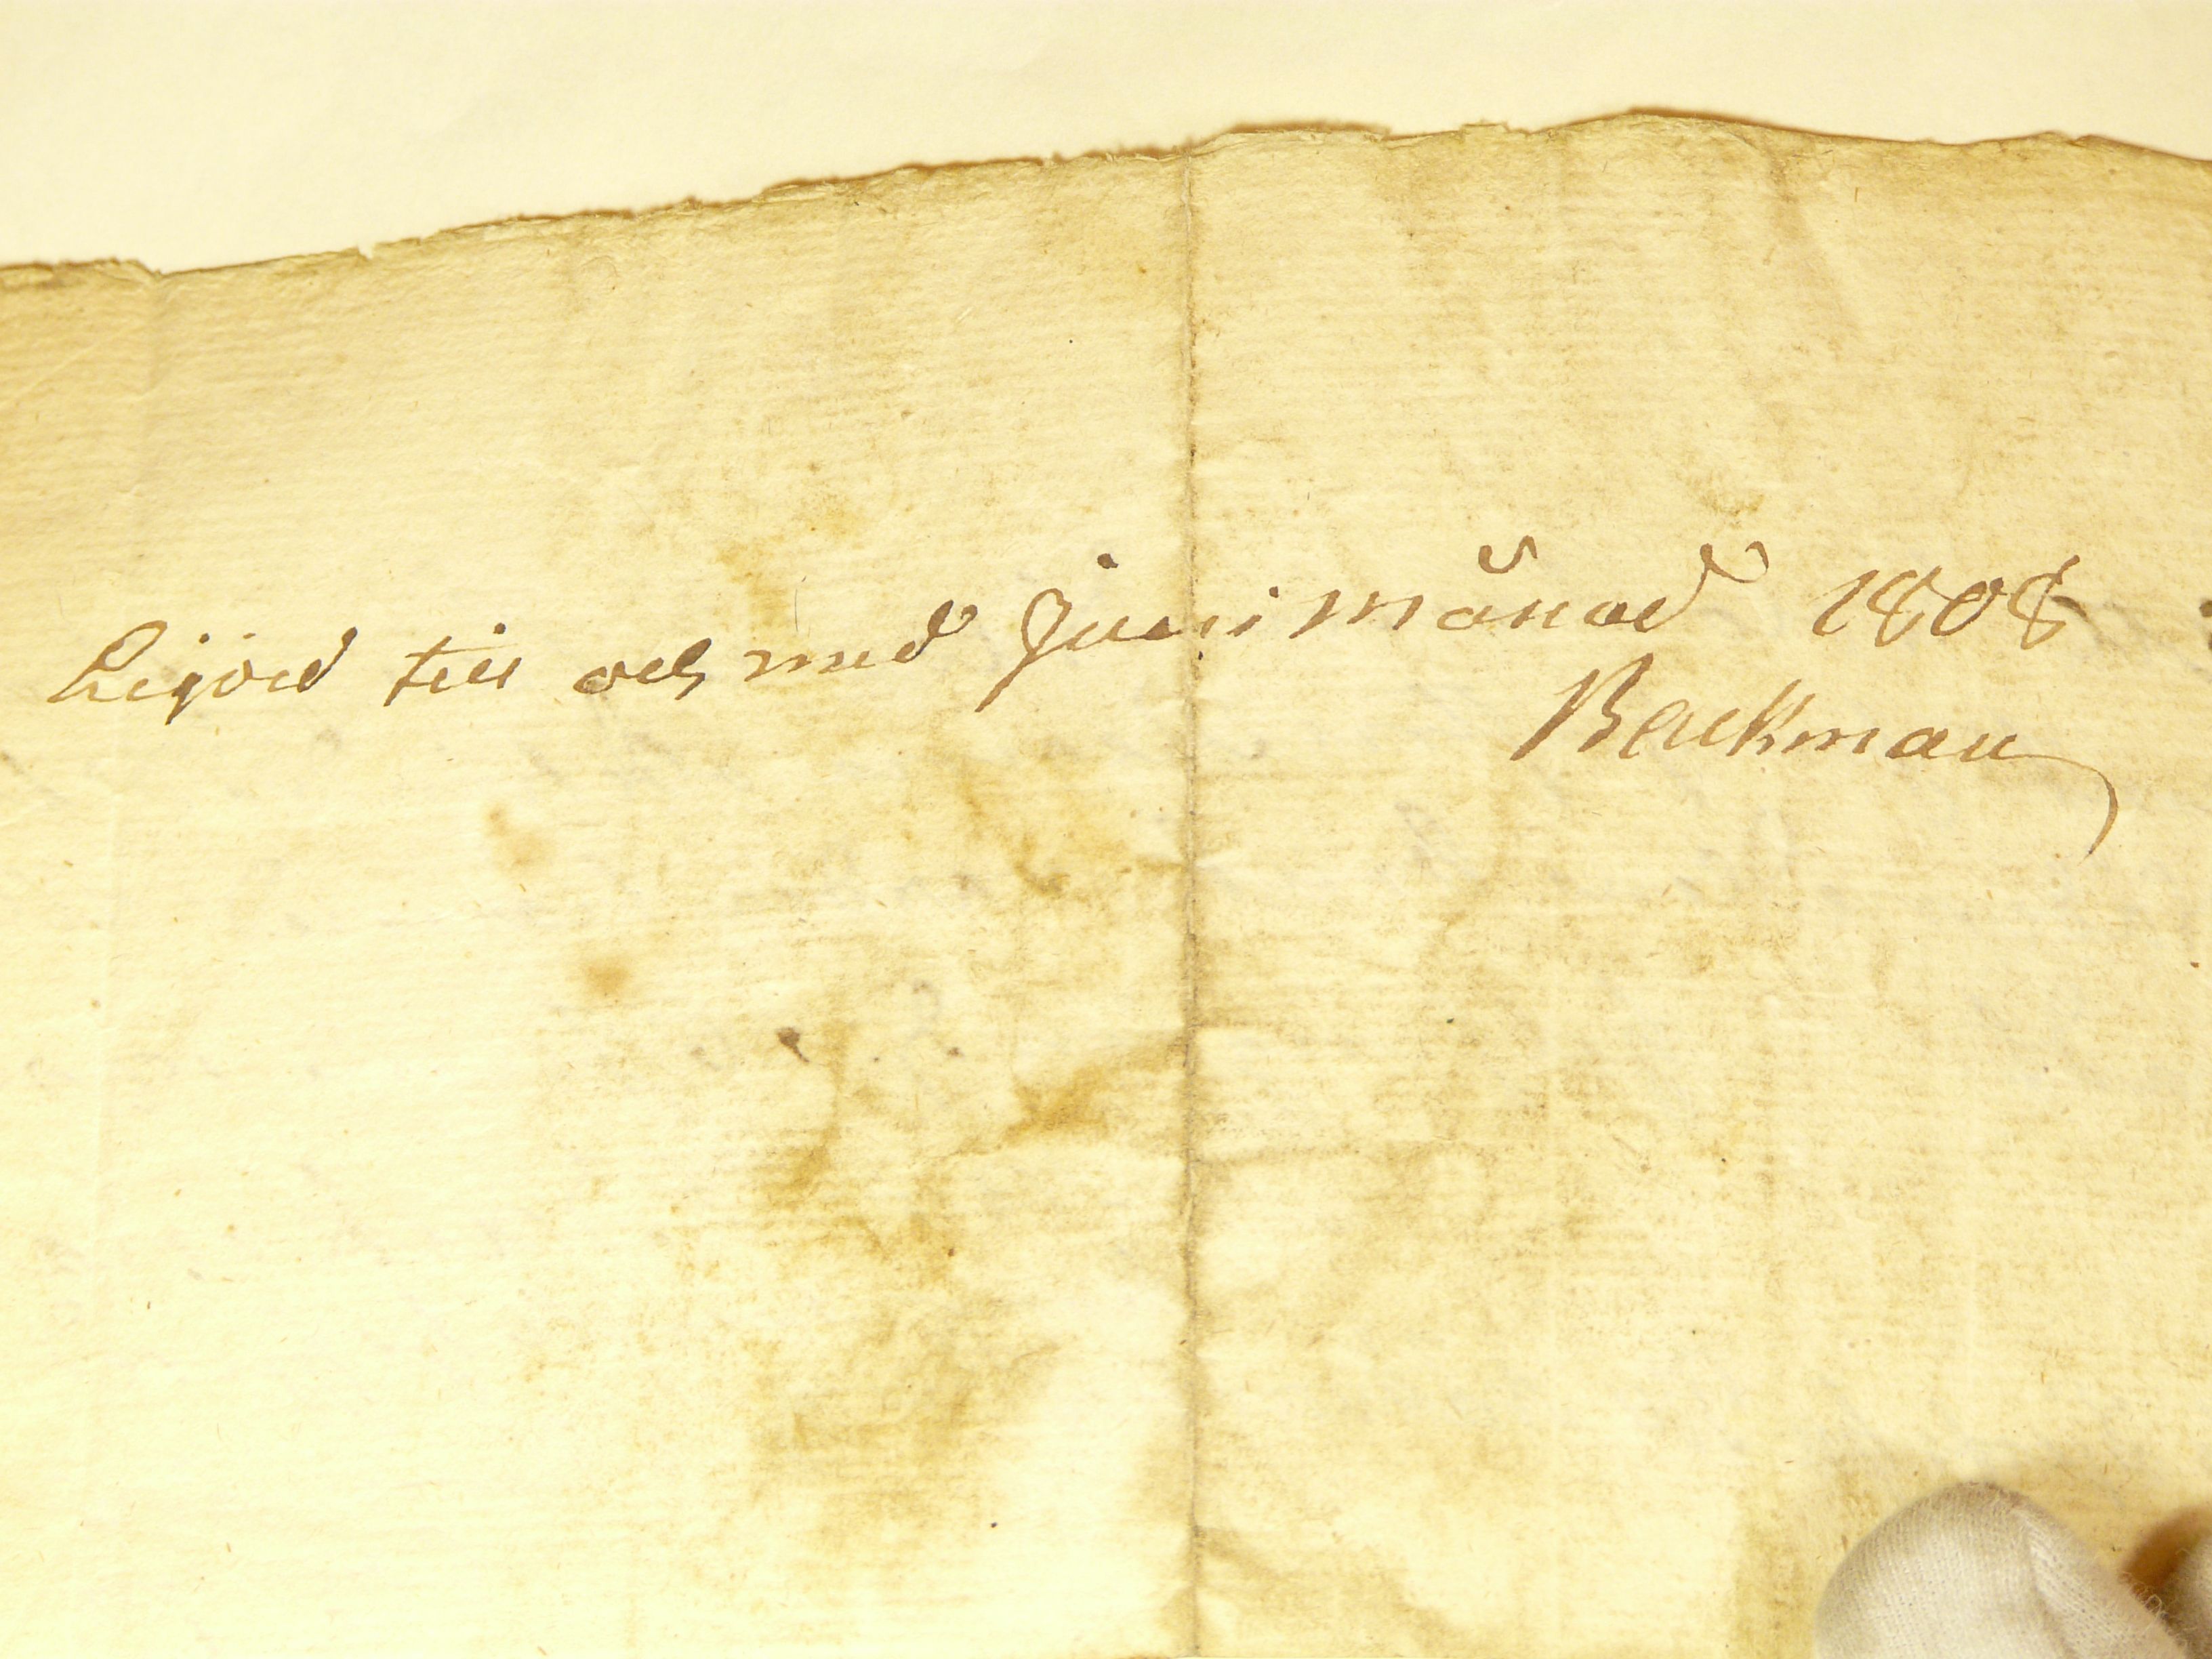 till och med Juni månad 1808
Backman